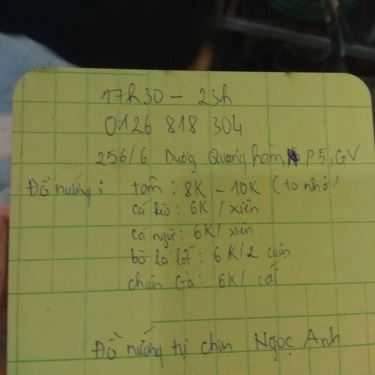 17h30 - 23h
0126 818 304
256/6 Dương Quảng Hàm P5, GV
Đồ nướng: tôm: 8K - 10K (to nhỏ)
cá : 6K / xiên
cá ngừ: 6K / xiên
bò lá lốt: 6K/2 cuốn
chân Gà: 6K / cái
Đồ nướng tự chọn Ngọc Anh